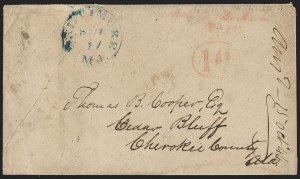 BALTIMORE
17
Md.
10
Thomas B. Cooper, Esq
Cedar Bluff
Cherokee County
Ala.